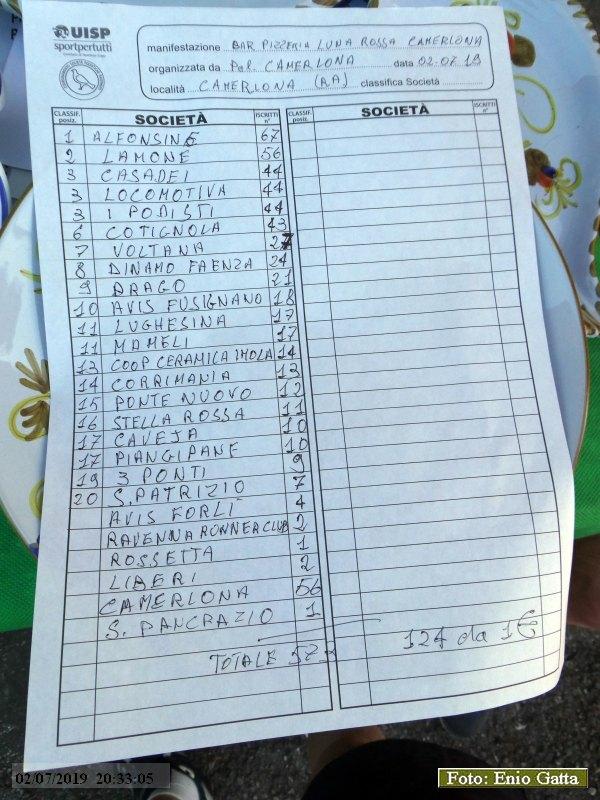 UISP
sportpertutti
manifestazione BAR PIZZERIA LUNA ROSSA CAMERLONA
organizzata da Pol. CAMERLONA data 02.07.19
località CAMERLONA (RA) classifica Società
CLASSIF. posiz. SOCIETÀ ISCRITTI n° CLASSIF. posiz. SOCIETÀ ISCRITTI n°
1 ALFONSINE 67
2 LAMONE 56
3 CASADEI 44
3 LOCOMOTIVA 44
3 I PODISTI 44
6 COTIGNOLA 43
7 VOLTANA 27
8 DINAMO FAENZA 24
9 DRAGO 21
10 AVIS FUSIGNANO 18
11 LUGHESINA 17
11 MAMELI 17
13 COOP CERAMICA IMOLA 14
14 CORRIMANIA 13
15 PONTE NUOVO 12
16 STELLA ROSSA 11
17 CAVEJA 10
17 PIANGIPANE 10
19 3 PONTI 9
20 S. PATRIZIO 7
AVIS FORLÌ 4
RAVENNA RUNNER CLUB 2
ROSSETTA 1
LIBERI 2
CAMERLONA 56
S. PANCRAZIO 1
TOTALE
124 da 1€
02/07/2019 20:33:05
Foto: Enio Gatta